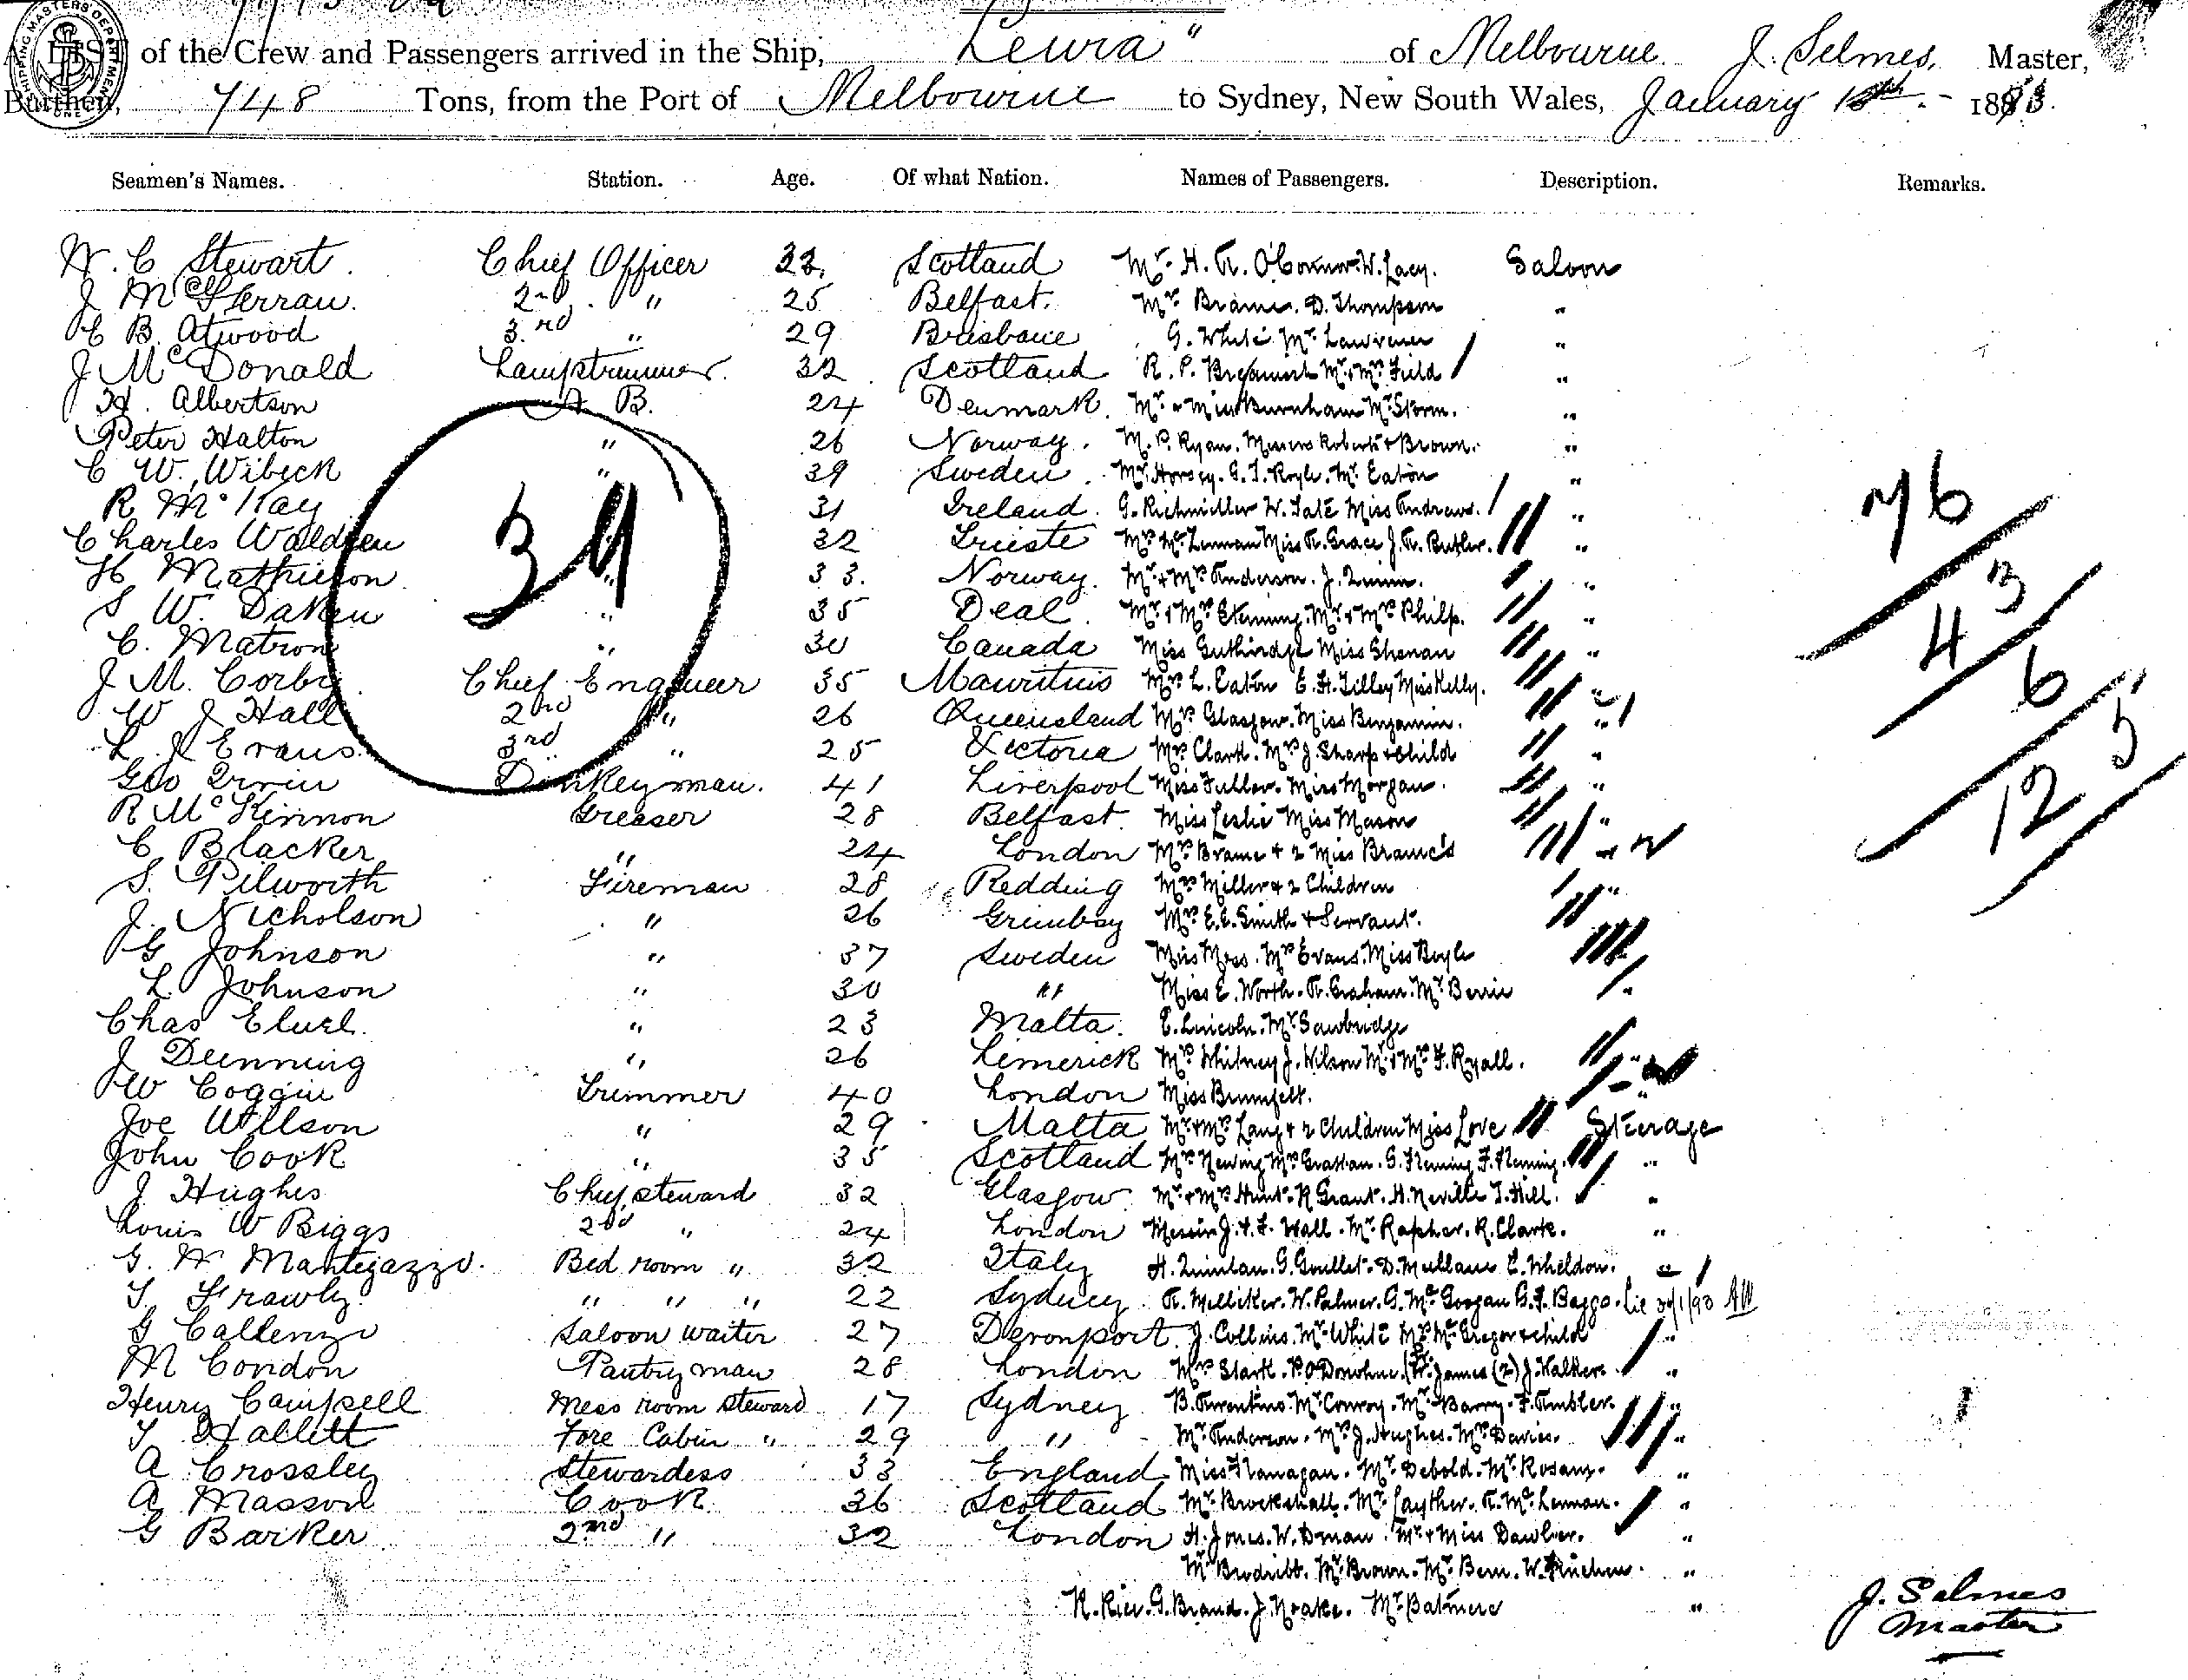 LIST of the Crew and Passengers arrived in the Ship, Leura" of Melbourne J. Selmes, Master,
Burthen, 748 Tons, from the Port of Melbourne to Sydney, New South Wales, January 1893.
Seamen's Names. Station. Age. Of what Nation. Names of Passengers. Description. Remarks.
W. C Stewart. Chief Officer 32, Scotland Mr. H. A. O'Connor. W. Lacy. Saloon
J McSterran. 2nd " 25 Belfast. Mr. Brame. D. Thompson "
C B. Atwood 3rd " 29 Brisbane G. White Mr. Lawrence "
J McDonald Lamptrimmer. 32 Scotland R. P. Mr. & Mrs. Field "
H. Albertson A B. 24 Denmark. Mr. & Miss Burnham Mr. Storm. "
Peter Halton " 26 Norway. M. P. Ryan. Messrs Roberts & Brown. "
C W. Wibeck " 39 Sweden. Mr. Horsey. G. F. Royle. Mr. Eaton "
R McKay 31 Ireland. G. Richmiller W. Tate Miss Andrews. "
Charles Waldren 32 Trieste Mrs. McLennan Miss A. Grace J. A. Butler. "
H Mathieson " 33. Norway. Mr. & Mrs. Anderson. J. Quinn. "
S W. Daken " 35 Deal. Mr. & Mrs. Mr. & Mrs. Philp. "
C. Matron " 30 Canada Miss Guthridge Miss Shenan "
J M. Corby. Chief Engineer 35 Mauritius Mrs. L. Eaton E. H. Tilley Miss Kelly. "
W J Hall 2nd " 26 Queensland Mrs. Glasgow. Miss Benjamin. "
L J Evans. 3rd " 25 Victoria Mrs. Clark. Mrs. J. Sharp & Child "
Geo Irwin Donkeyman. 41 Liverpool Miss Fuller. Miss Morgan. "
R McKinnon Greaser 28 Belfast. Miss Leslie Miss Mason "
C Blacker " 24 London Mrs. Brame & 2 Miss Brame's "
S. Pilworth Fireman 28 Redding Mrs. Miller & 2 Children "
J. Nicholson " 26 Grimbsy Mrs. E. E. Smith & Servant.
G Johnson " 37 Sweden Miss Moss. Mrs. Evans. Miss Boyle
L. Johnson " 30 " Miss E. Worth. A. Graham. Mr. Berrie "
Chas Eluel. " 23 Malta. E. Lincoln. Mr. Sawbridge
J Dunning " 26 Limerick Mrs. Whitney J. Wilson Mr. & Mrs. F. Ryall. "
W Coggin Trimmer 40 London Miss "
Joe Willson " 29 Malta Mr. & Mrs. Lang & 2 Children Miss Love Steerage
John Cook " 35 Scotland Mrs. Newing Mrs. Graham. G. Fleming F. Fleming. "
J Hughes Chief steward 32 Glasgow. Mr. & Mrs. Hunt. R Grant. H. Neville T. Hill. "
Louis W Biggs 2nd " 24 London Messrs J. & F. Wall. Mr. Rapher. R. Clark. "
G. W Mantegazzo. Bed room " 32 Italy H. Quinlan. G. Goullet. D. Mullane E. Wheldon. "
T Frawly. " " " 22 Sydney. A. Melliker. W. Palmer. G. McGoogan G. F. Baggo.
G Callenzo Saloon waiter 27 Devonport. J. Collins. Mr. White Mrs. McGregor & child "
M Condon Pantryman 28 London Mrs. Stark. P. O'Donohue. James (2) J. Walker. "
Henry Campsell Mess room steward 17 Sydney B. Mr. Conroy. Mr. Barry. F. Ambler. "
T Hallett Fore Cabin " 29 " Mr. Anderson. Mrs. J. Hughes. Mrs. Davies. "
A Crossley Stewardess 33 England Miss Flanagan. Mr. Debold. Mr. "
A Masson Cook 36 Scotland Mr. Brockshall. Mr. Layther. A. McLennan. "
G Barker 2nd " 32 London H. Jones. W. Mr. & Miss Dawber. "
Mr. Brodribb. Mr. Brown. Mr. Bern. W. "
R. Rice. G. Brand. J. Noake. Mr. Batmere "
39
76
3
4
6
5
12
J. Selmes
Master